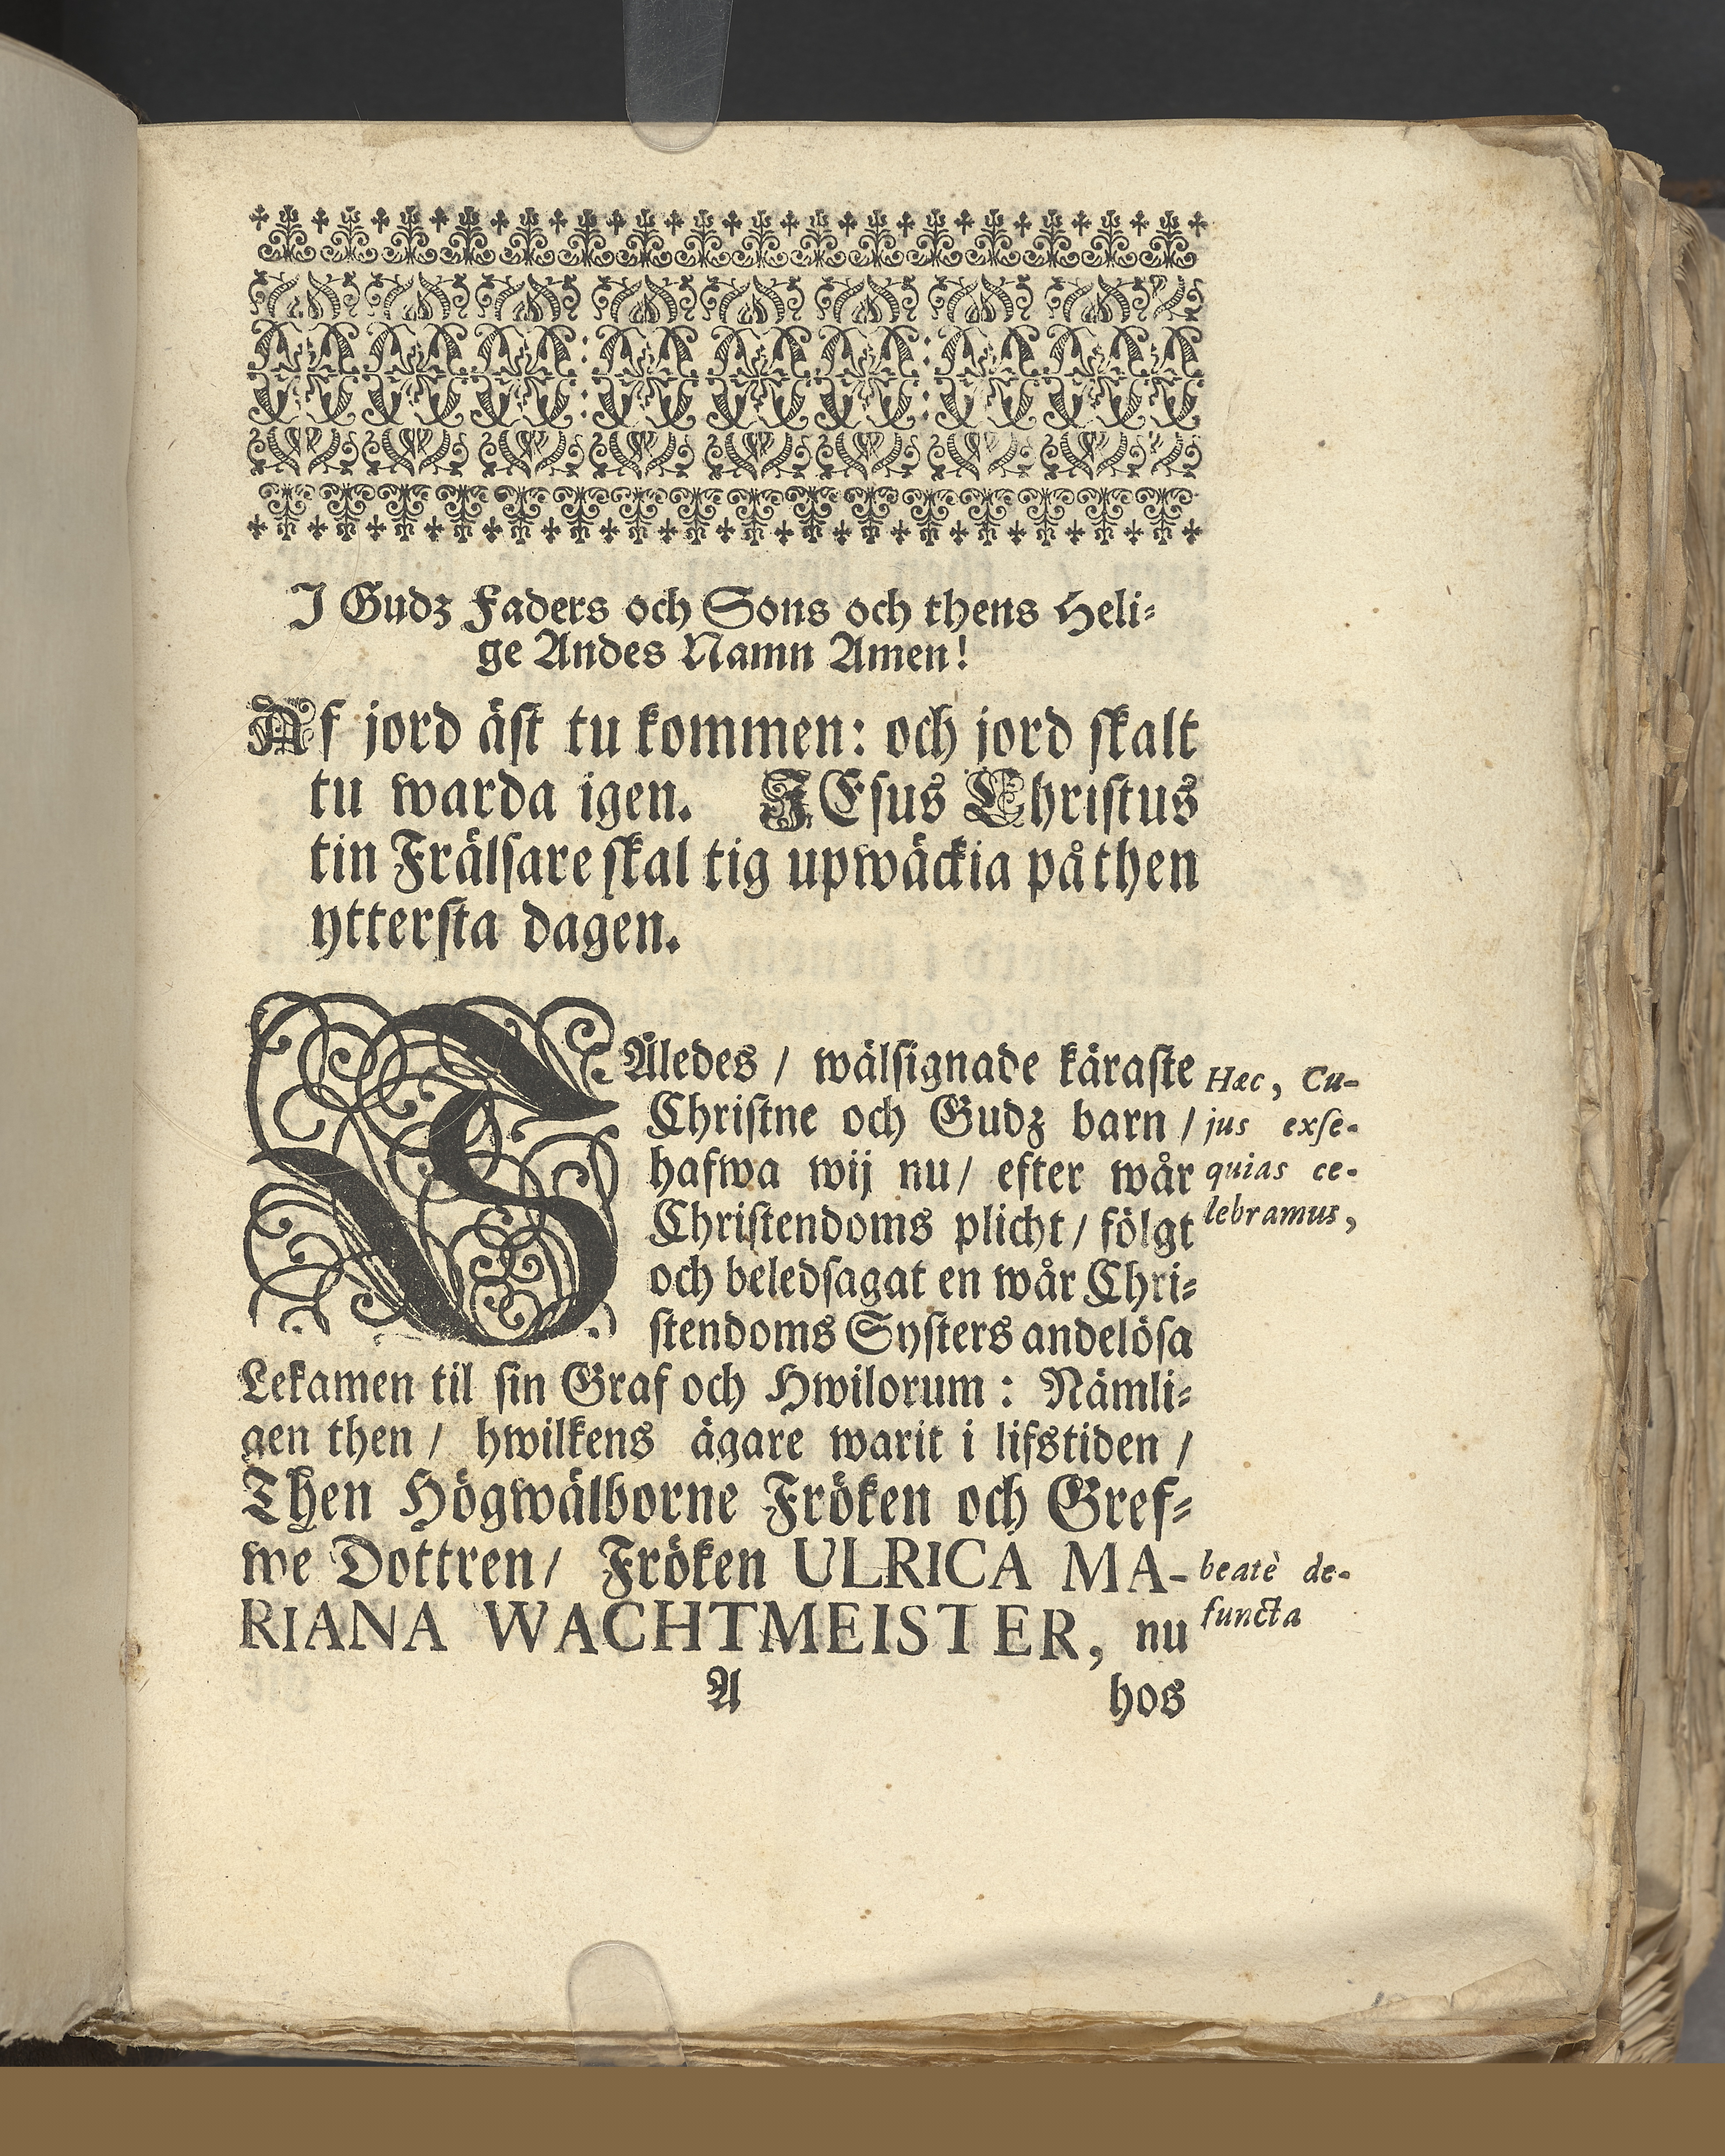 I Gudz Faders och Sons och thens Heli-
ge Andes Namn Amen!
Af jord äst tu kommen: och jord skalt
tu warda igen. JEsus Christus
tin Frälsare skal tig upwäckia på then
yttersta dagen.
SÅledes / wälsignade käraste
Christne och Gudz barn /
hafwa wij nu / efter wår
Christendoms plicht / fölgt
och beledsagat en wår Chri-
stendoms Systers andelösa
Lekamen til sin Graf och Hwilorum: Nämli-
gen then / hwilkens ägare warit i lifstiden /
Then Högwälborne Fröken och Gref-
we Dottren / Fröken ULRICA MA-
RIANA WACHTMEISTER, nu
A hos
Hæc, Cu-
jus exse-
quias ce-
lebramus,
beatè de-
functa